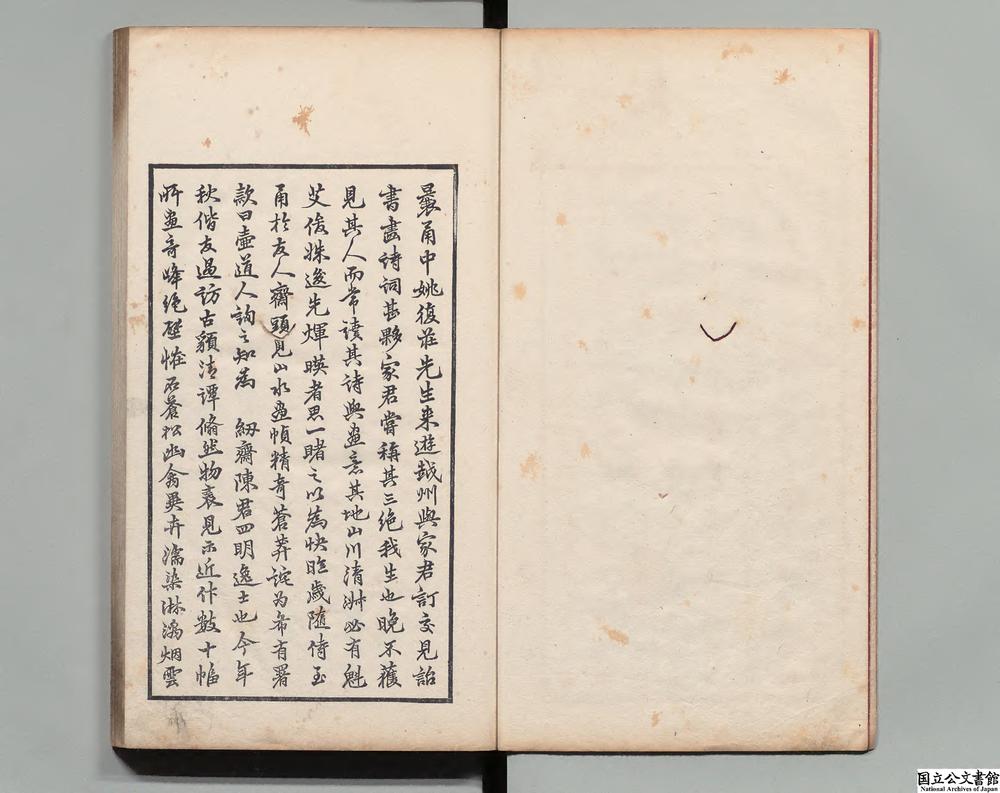 曩甬中姚復莊先生来遊越州與家君訂交見詒
書畫詩詞甚夥家君嘗稱其三絶我生也晚不獲
見其人而常讀其詩與畫意其地山川清淑必有魁
艾俊姝逡先煇暎者思一睹之以為快昨歲隨侍至
甬於友人齋頭見山水畫幀精奇蒼莽詫为希有署
款曰壺道人詢之知為 紉齋陳君四明逸士也今年
秋偕友過訪古額清譚翛然物表見示近作數十幅
所畫奇峰絶壁恠石蒼松幽禽異卉濡染淋漓烟雲
国立公文書館
National Archives of Japan